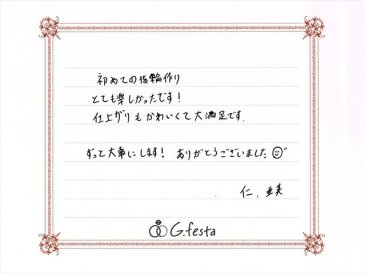 初めての指輪作り
とても楽しかったです！
仕上がりもかわいくて大満足です。
ずっと大事にします！ ありがとうございました
仁、亜美
G.festa